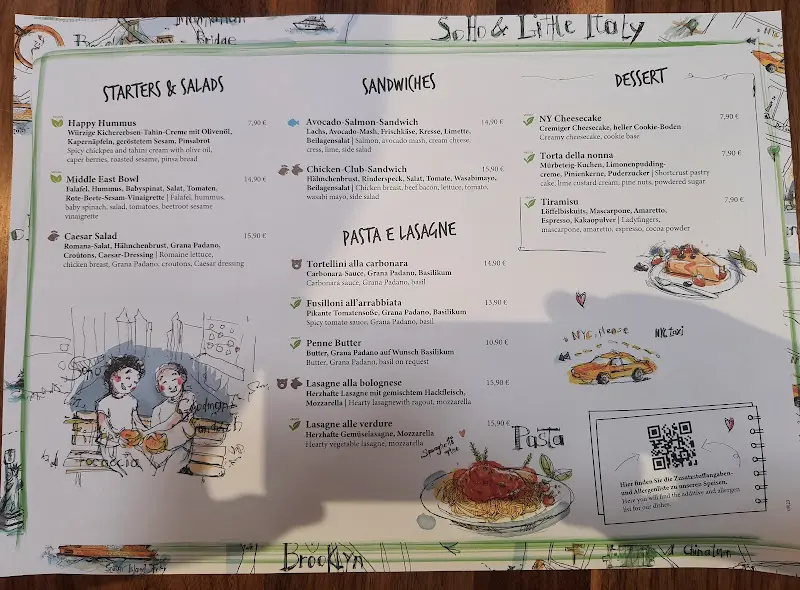 Manhattan
Bridge
SoHo & Little Italy
STARTERS & SALADS
Happy Hummus 7,90 €
Würzige Kichererbsen-Tahin-Creme mit Olivenöl,
Kapernäpfeln, geröstetem Sesam, Pinsabrot
Spicy chickpea and tahini cream with olive oil,
caper berries, roasted sesame, pinsa bread
Middle East Bowl 14,90 €
Falafel, Hummus, Babyspinat, Salat, Tomaten,
Rote-Beete-Sesam-Vinaigrette | Falafel, hummus,
baby spinach, salad, tomatoes, beetroot sesame
vinaigrette
Caesar Salad 15,90 €
Romana-Salat, Hähnchenbrust, Grana Padano,
Croûtons, Caesar-Dressing | Romaine lettuce,
chicken breast, Grana Padano, croutons, Caesar dressing
SANDWICHES
Avocado-Salmon-Sandwich 14,90 €
Lachs, Avocado-Mash, Frischkäse, Kresse, Limette,
Beilagensalat | Salmon, avocado mash, cream cheese,
cress, lime, side salad
Chicken-Club-Sandwich 15,90 €
Hähnchenbrust, Rinderspeck, Salat, Tomate, Wasabimayo,
Beilagensalat | Chicken breast, beef bacon, lettuce, tomato,
wasabi mayo, side salad
PASTA E LASAGNE
Tortellini alla carbonara 14,90 €
Carbonara-Sauce, Grana Padano, Basilikum
Carbonara sauce, Grana Padano, basil
Fusilloni all'arrabbiata 13,90 €
Pikante Tomatensoße, Grana Padano, Basilikum
Spicy tomato sauce, Grana Padano, basil
Penne Butter 10,90 €
Butter, Grana Padano auf Wunsch Basilikum
Butter, Grana Padano, basil on request
Lasagne alla bolognese 15,90 €
Herzhafte Lasagne mit gemischtem Hackfleisch,
Mozzarella | Hearty lasagnewith ragout, mozzarella
Lasagne alle verdure 15,90 €
Herzhafte Gemüselasagne, Mozzarella
Hearty vegetable lasagne, mozzarella
DESSERT
NY Cheesecake 7,90 €
Cremiger Cheesecake, heller Cookie-Boden
Creamy cheesecake, cookie base
Torta della nonna 7,90 €
Mürbeteig-Kuchen, Limonenpudding-
creme, Pinienkerne, Puderzucker | Shortcrust pastry
cake, lime custard cream, pine nuts, powdered sugar
Tiramisu 7,90 €
Löffelbiskuits, Mascarpone, Amaretto,
Espresso, Kakaopulver | Ladyfingers,
mascarpone, amaretto, espresso, cocoa powder
NYC, please
NYC taxi
Pasta
Hier finden Sie die Zusatzstoffangaben-
und Allergenliste zu unseren Speisen.
Here you will find the additive and allergen
list for our dishes.
Brooklyn
Chinatown